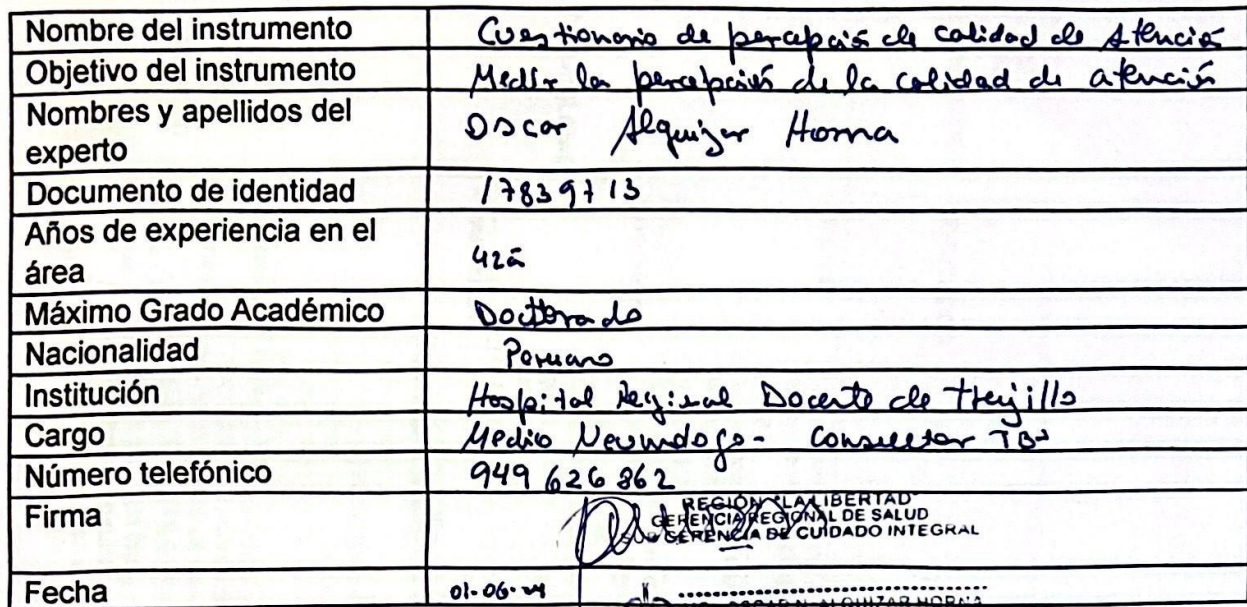 Nombre del instrumento Cuestionario de percepción de calidad de Atención
Objetivo del instrumento Medir la percepción de la calidad de atención
Nombres y apellidos del experto Oscar Alquizar Horna
Documento de identidad 17839713
Años de experiencia en el área 42a
Máximo Grado Académico Doctorado
Nacionalidad Peruano
Institución Hospital Regional Docente de Trujillo
Cargo Medico Neumologo - Consultor TB
Número telefónico 949 626 862
Firma
REGIÓN LA LIBERTAD
GERENCIA REGIONAL DE SALUD
GERENCIA DE CUIDADO INTEGRAL
Fecha 01-06-
OSCAR N. ALQUIZAR HORNA